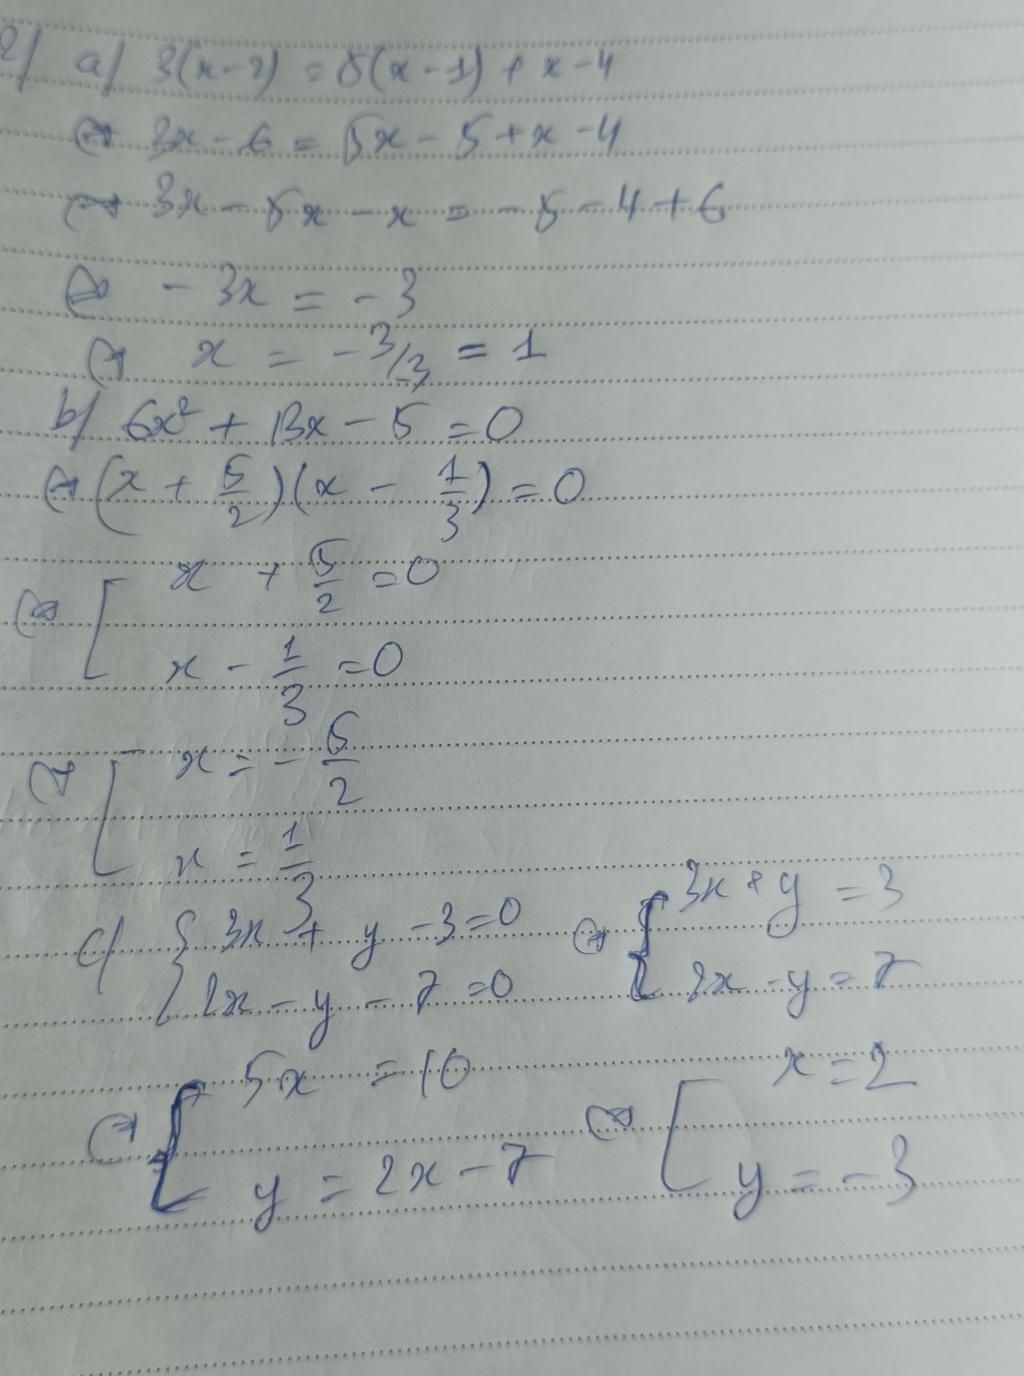 2/ a/ 3(x-2) = 5(x-1) + x-4
⇔ 3x - 6 = 5x - 5 + x - 4
⇔ 3x - 5x - x = -5 - 4 + 6
⇔ - 3x = - 3
⇔ x = -3/-3 = 1
b/ 6x² + 13x - 5 = 0
⇔ (x + 5/2)(x - 1/3) = 0
⇔ [ x + 5/2 = 0
x - 1/3 = 0
⇔ [ x = - 5/2
x = 1/3
c/ { 3x + y - 3 = 0 ⇔ { 3x + y = 3
2x - y - 7 = 0 2x - y = 7
⇔ { 5x = 10 ⇔ [ x = 2
y = 2x - 7 y = -3